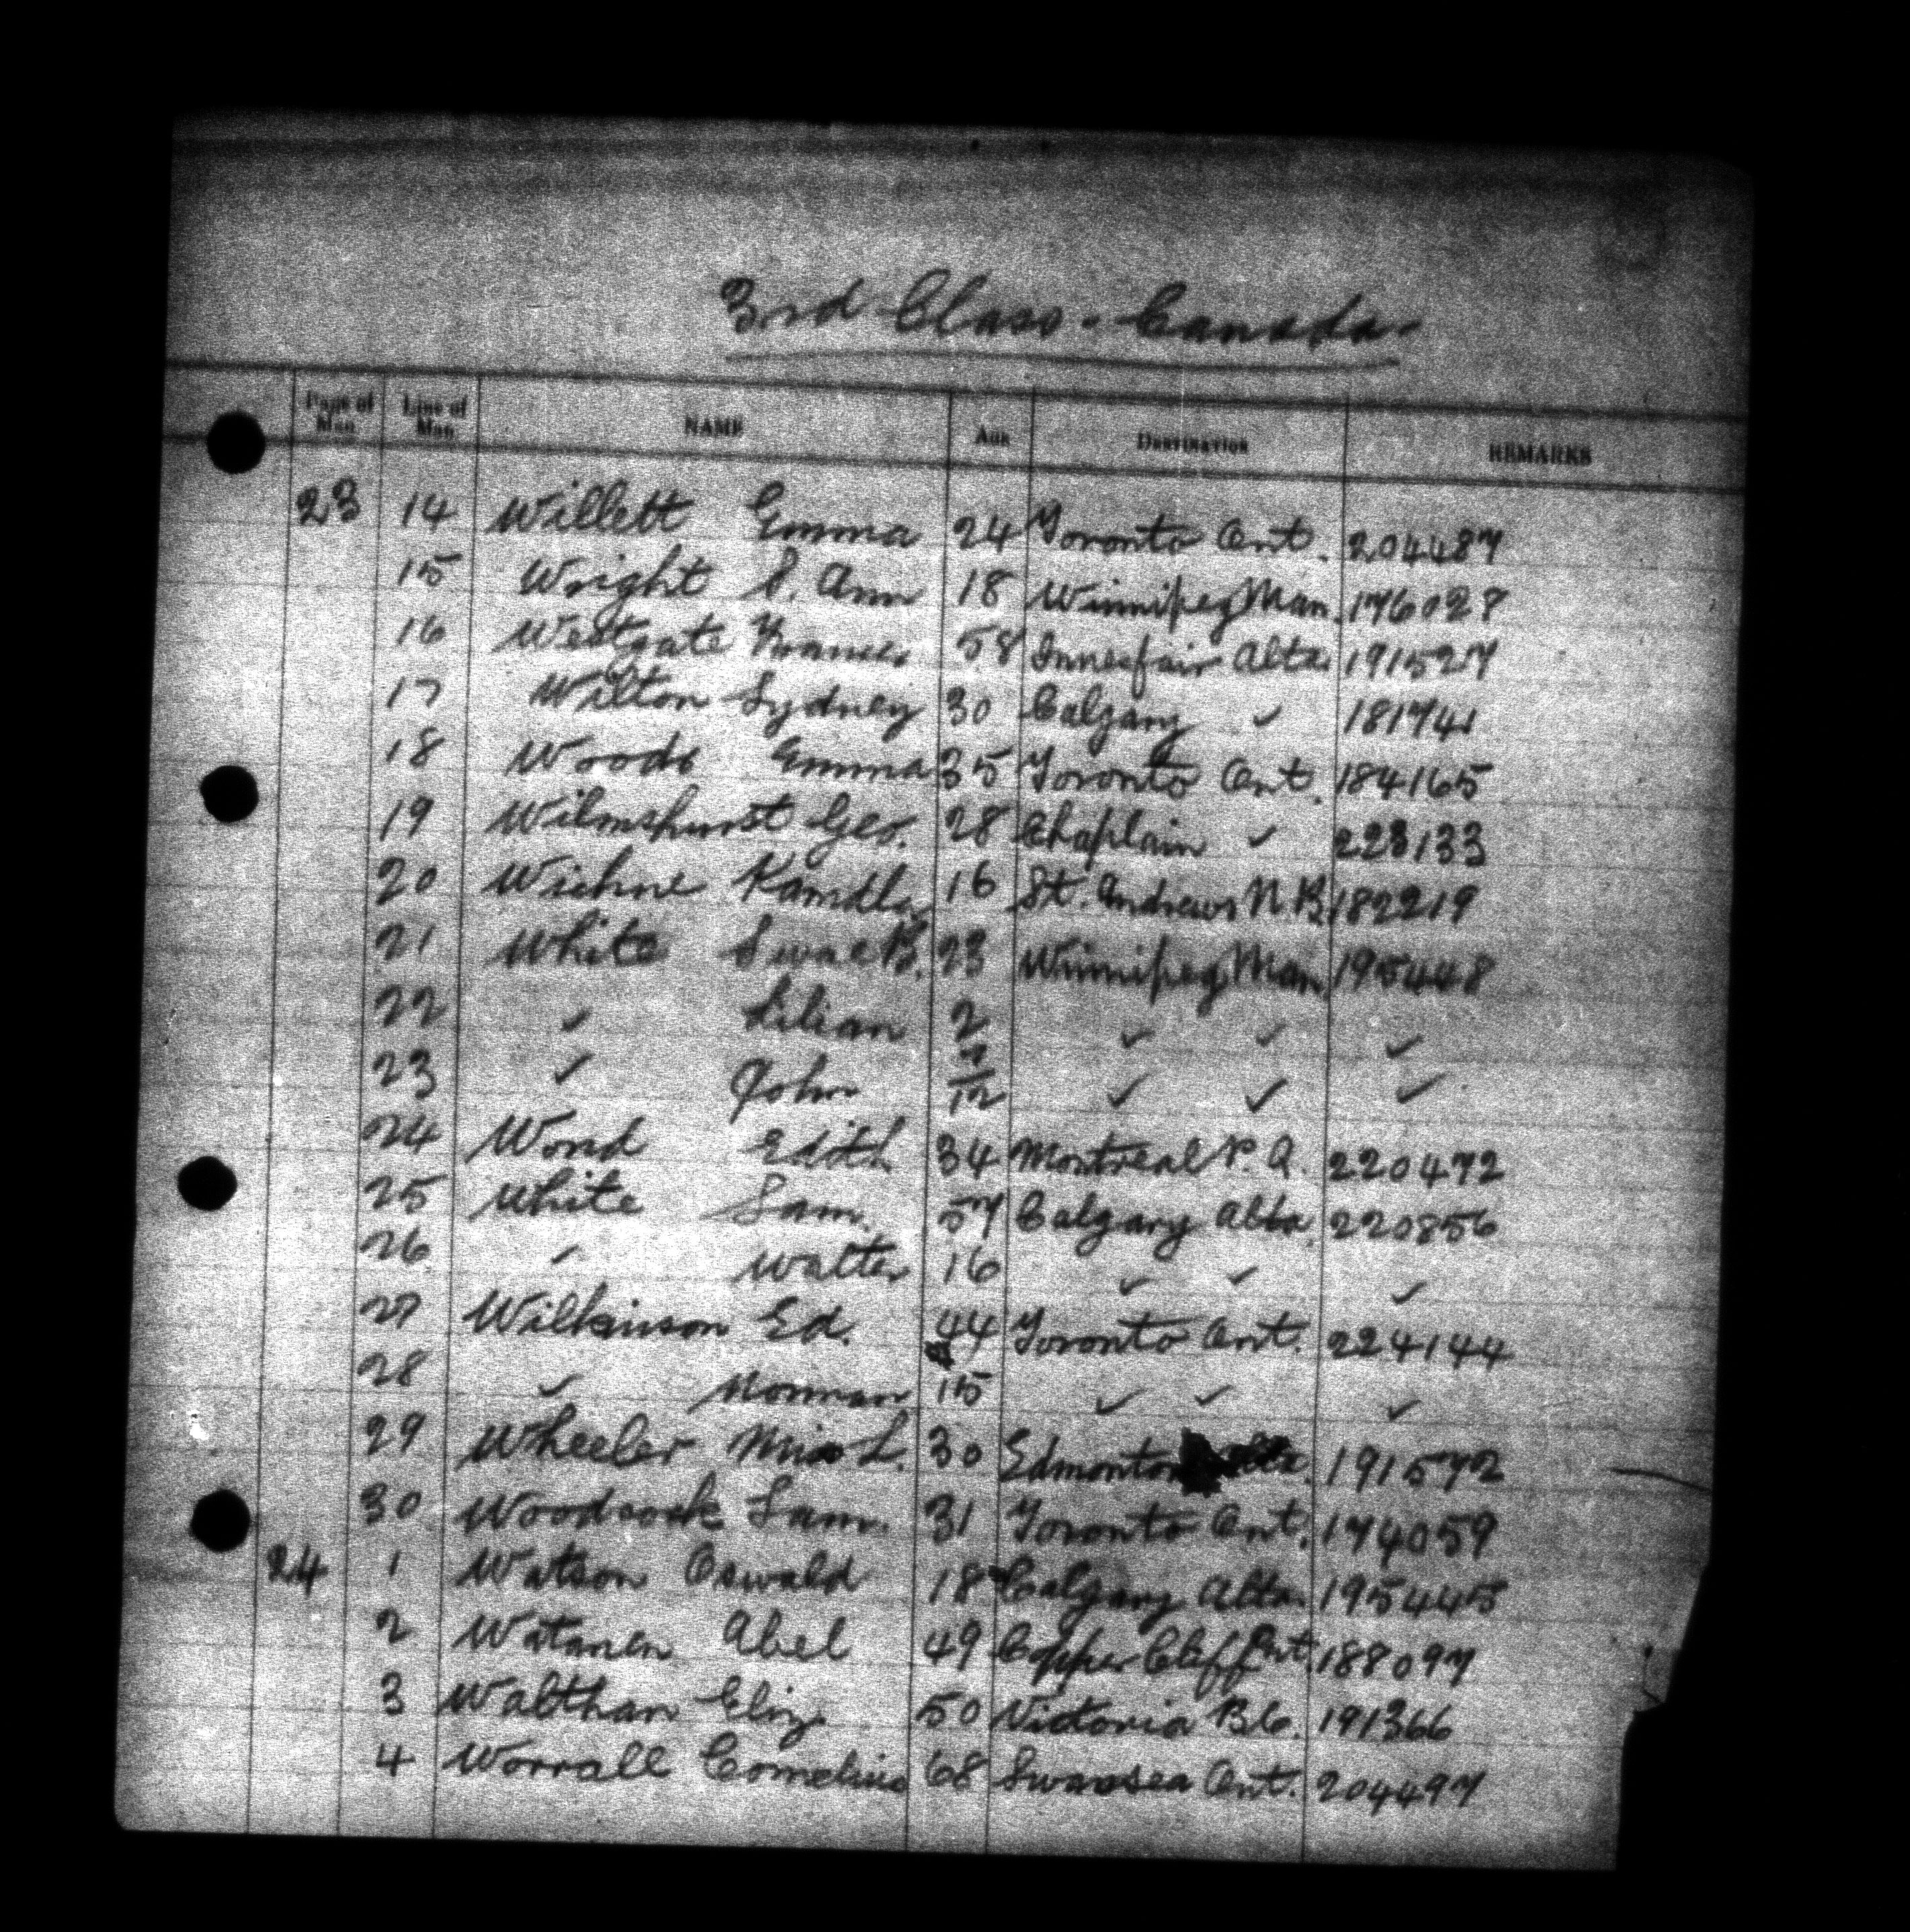 3rd Class - Canada -
Page of Man Line of Man NAME AGE DESTINATION REMARKS
23 14 Willett Emma 24 Toronto Ont. 204487
15 Wright S. Ann 18 Winnipeg Man. 176028
16 Westgate Frances 58 Innesfair Alta. 191527
17 Wilton Sydney 30 Calgary ✓ 181741
18 Woods Emma 35 Toronto Ont. 184165
19 Wilmshurst Geo. 28 Chaplain ✓ 223133
20 Wichne Kamdla 16 St. Andrews N.B. 182219
21 White B. 23 Winnipeg Man. 195448
22 ✓ Lilian 2 ✓ ✓ ✓
23 ✓ John 7/12 ✓ ✓ ✓
24 Wond Edith 34 Montreal P.Q. 220472
25 White Sam. 57 Calgary Alta. 220856
26 ✓ Walter 16 ✓ ✓ ✓
27 Wilkinson Ed. 44 Toronto Ont. 224144
28 ✓ Norman 15 ✓ ✓ ✓
29 Wheeler Miss L. 30 Edmonton Alta. 191572
30 Woodcock Sam. 31 Toronto Ont. 174059
24 1 Watson Oswald 18 Calgary Alta. 195445
2 Watanen Abel 49 Copper Cliff Ont. 188097
3 Walthan Eliz. 50 Victoria B.C. 191366
4 Worrall Cornelius 68 Swansea Ont. 204497